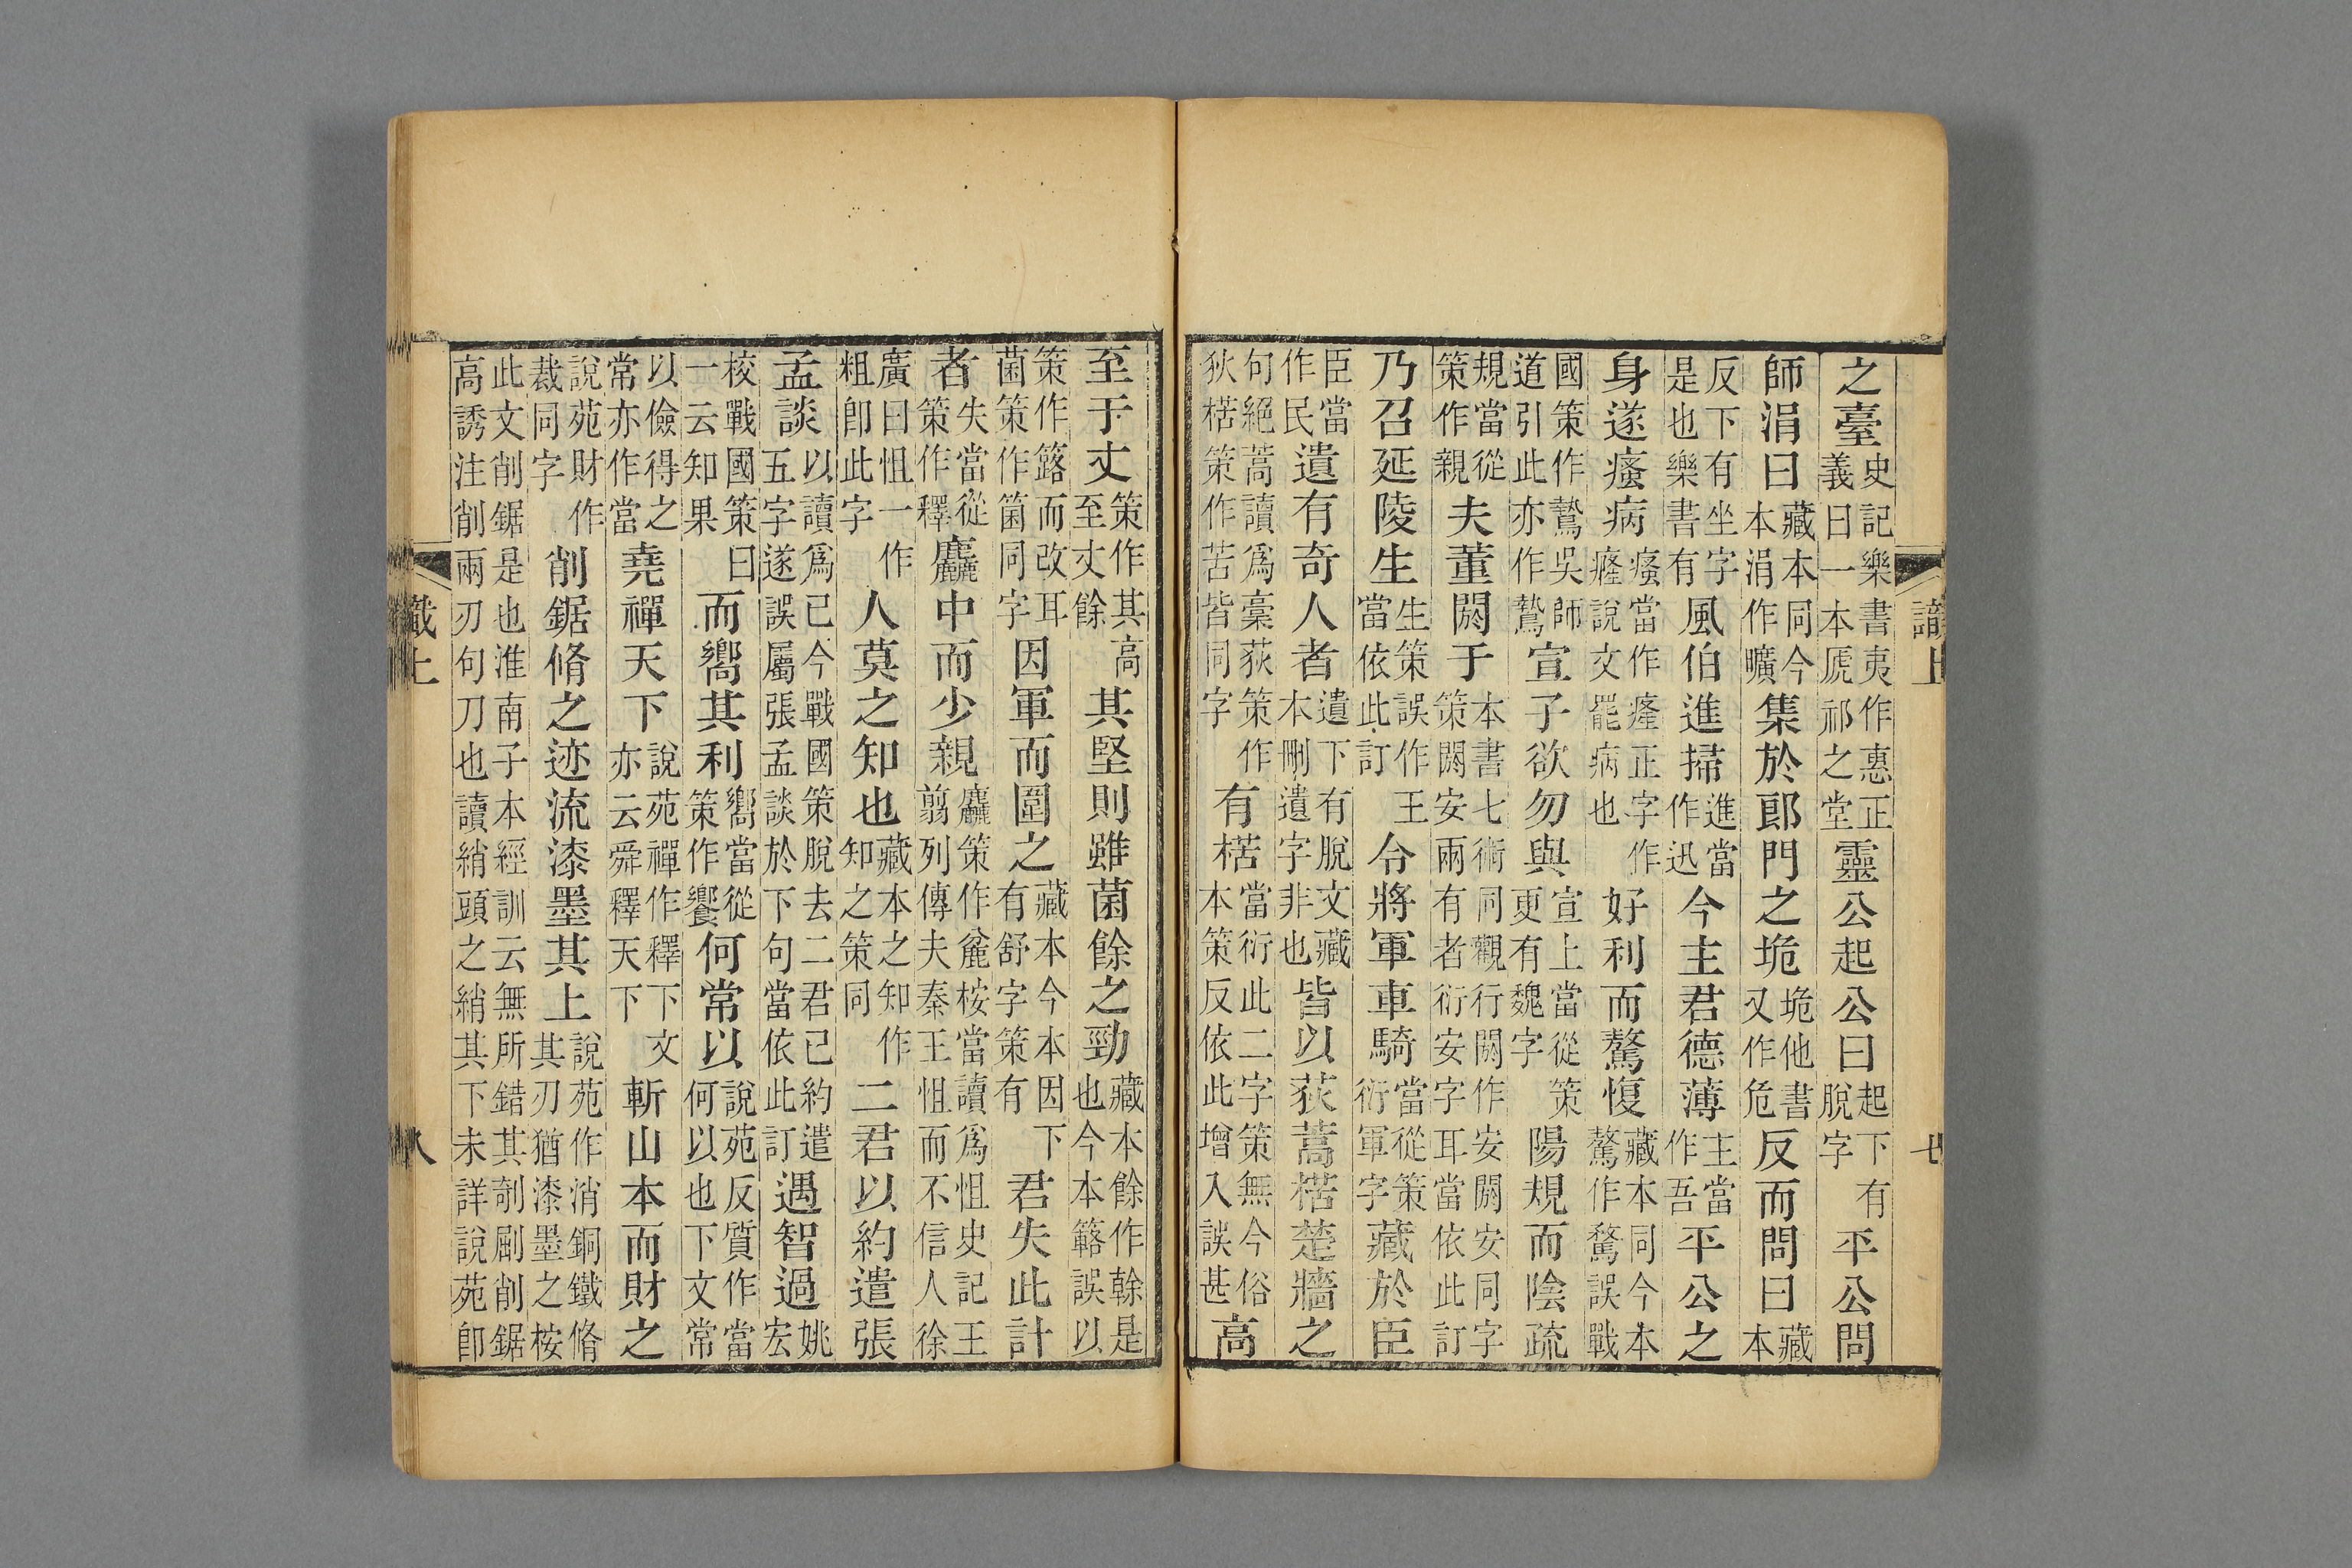 之臺史記樂書夷作惠正義曰一本虒祁之堂靈公起公曰起下有脫字平公問
師涓曰藏本同今本涓作曠集於郎門之垝垝他書又作危反而問曰藏本
反下有坐字是也樂書有風伯進掃進當作迅今主君德薄主當作吾平公之
身遂瘙病瘙當作癃正字作癃說文罷病也好利而驁愎藏本同今本驁作鶩誤戰
國策作鷙吳師道引此亦作鷙宣子欲勿與宣上當從策更有魏字陽規而陰疏
規當從策作親夫董閼于本書七術同觀行閼作安閼安同字策閼安兩有者衍安字耳當依此訂
乃召延陵生生策誤作王當依此訂令將軍車騎當從策衍軍字藏於臣
臣當作民遺有奇人者遺下有脫文藏本刪遺字非也皆以荻蒿楛楚牆之
句絕蒿讀爲稾荻策作狄楛策作苦皆同字有楛當衍此二字策無今俗本策反依此增入誤甚高
識上 七
至于丈策作其高至丈餘其堅則雖菌餘之勁藏本餘作幹是也今本簵誤以
策作簬而改耳菌策作箘同字因軍而圍之藏本今本因下有舒字策有君失此計
者失當從策作釋麤中而少親麤策作麄桉當讀爲怚史記王翦列傳夫秦王怚而不信人徐
廣曰怚一作粗卽此字人莫之知也藏本之知作知之策同二君以約遣張
孟談以讀爲已今戰國策脫去二君已約遣五字遂誤屬張孟談於下句當依此訂遇智過姚宏
校戰國策曰一云知果而嚮其利嚮當從策作饗何常以說苑反質作當何以也下文常
以儉得之常亦作當堯禪天下說苑禪作釋下文亦云舜釋天下斬山本而財之
說苑財作裁同字削鋸脩之迹流漆墨其上說苑作消銅鐵脩其刃猶漆墨之桉
此文削鋸是也淮南子本經訓云無所錯其剞劂削鋸高誘注削兩刃句刀也讀綃頭之綃其下未詳說苑卽
識上 八